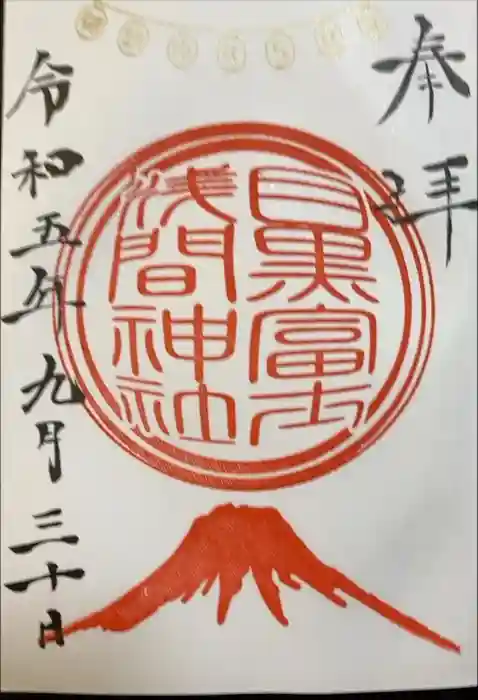 奉拝
目黒富士
浅間神社
令和五年九月三十日